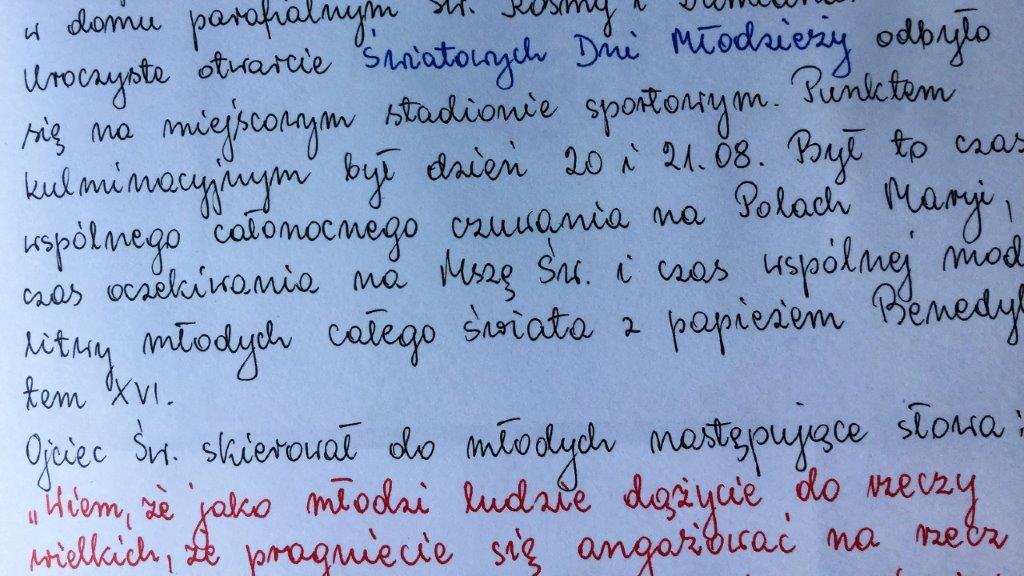 w domu parafialnym św. Kosmy i Damiana.
Uroczyste otwarcie Światowych Dni Młodzieży odbyło
się na miejscowym stadionie sportowym. Punktem
kulminacyjnym był dzień 20 i 21.08. Był to czas
wspólnego całonocnego czuwania na Polach Maryi,
czas oczekiwania na Mszę Św. i czas wspólnej mod
litwy młodych całego świata z papieżem Benedyk
tem XVI.
Ojciec Św. skierował do młodych następujące słowa:
„Wiem, że jako młodzi ludzie dążycie do rzeczy
wielkich, że pragniecie się angażować na rzecz